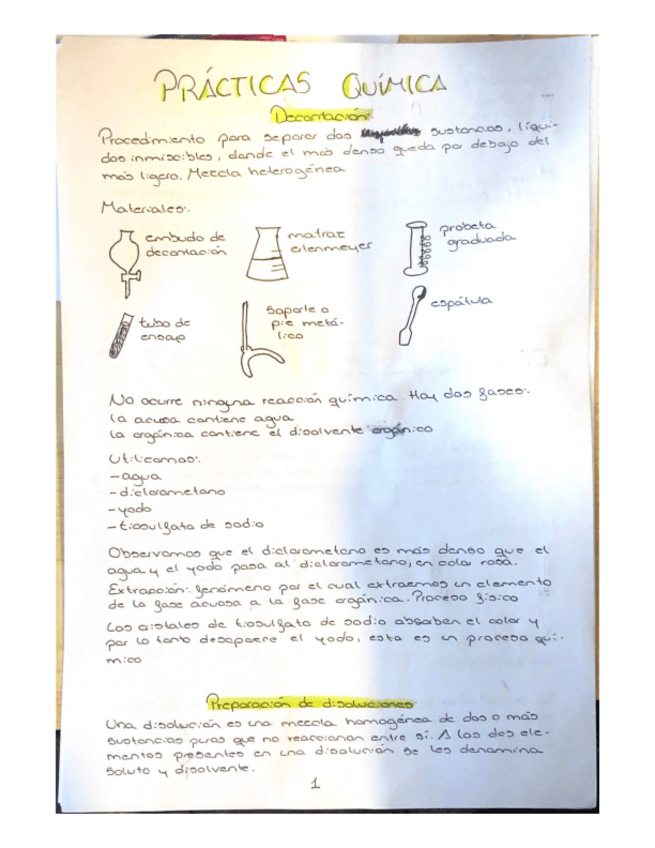 PRÁCTICAS QUÍMICA
Decantación:
Procedimiento para separar dos sustancias, líqui-
dos inmiscibles, donde el más denso queda por debajo del
más ligero. Mezcla heterogénea
Materiales:
embudo de
decantación
matraz
erlenmeyer
probeta
graduada
tubo de
ensayo
soporte o
pie metá-
lico
espátula
No ocurre ninguna reacción química. Hay dos fases:
la acuosa contiene agua
la orgánica contiene el disolvente orgánico
Utilizamos:
-agua
-diclorometano
-yodo
-tiosulfato de sodio
Observamos que el diclorometano es más denso que el
agua y el yodo pasa al diclorometano, en color rosa.
Extracción: fenómeno por el cual extraemos un elemento
de la fase acuosa a la fase orgánica. Proceso físico
Los cristales de tiosulfato de sodio absorben el color y
por lo tanto desaparece el yodo, esto es un proceso quí-
mico
Preparación de disoluciones
Una disolución es una mezcla homogénea de dos o más
sustancias puras que no reaccionan entre sí. A los dos ele-
mentos presentes en una disolución se les denomina
soluto y disolvente.
1